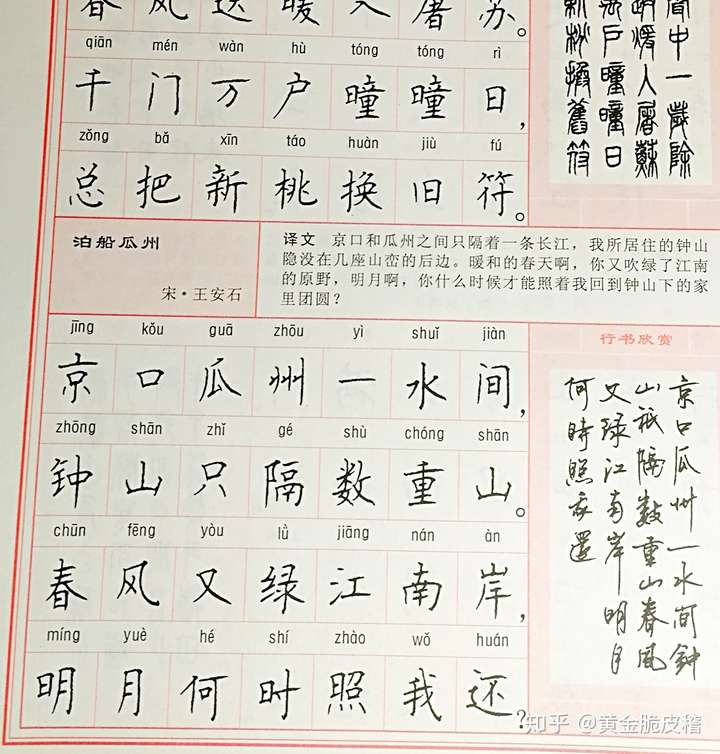 春风送暖入屠苏。
qiān mén wàn hù tóng tóng rì
千门万户曈曈日，
zǒng bǎ xīn táo huàn jiù fú
总把新桃换旧符。
中一歲除
暖入屠蘇
戶曈曈日
新桃換舊符
泊船瓜州
宋·王安石
译文 京口和瓜州之间只隔着一条长江，我所居住的钟山
隐没在几座山峦的后边。暖和的春天啊，你又吹绿了江南
的原野，明月啊，你什么时候才能照着我回到钟山下的家
里团圆？
jīng kǒu guā zhōu yì shuǐ jiàn
京口瓜州一水间，
zhōng shān zhǐ gé shù chóng shān
钟山只隔数重山。
chūn fēng yòu lǜ jiāng nán àn
春风又绿江南岸，
míng yuè hé shí zhào wǒ huán
明月何时照我还？
行书欣赏
京口瓜州一水间鐘
山祇隔數重山春風
又绿江南岸 明月
何時照我還
知乎 @黄金脆皮稽